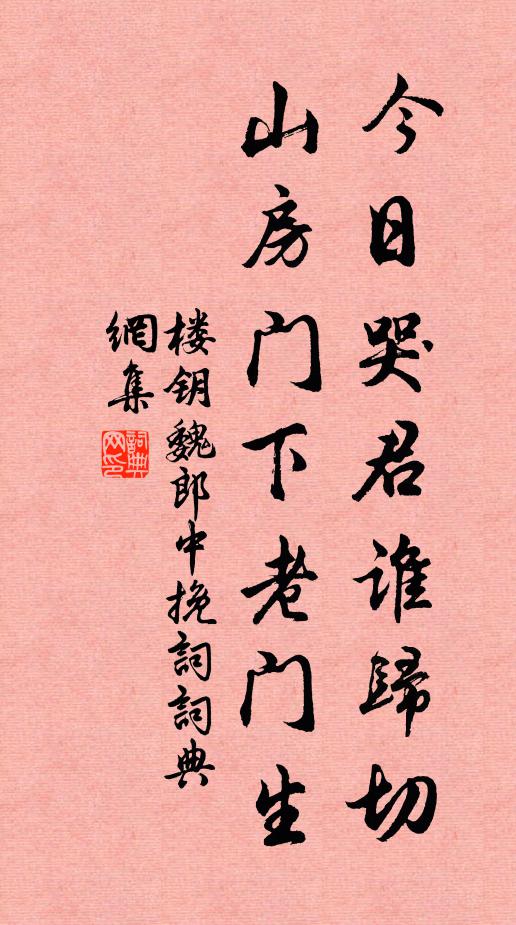 今日哭君谁歸切
山房门下老门生
楼钥魏郎中挽詞詞典
網集
詞典网印